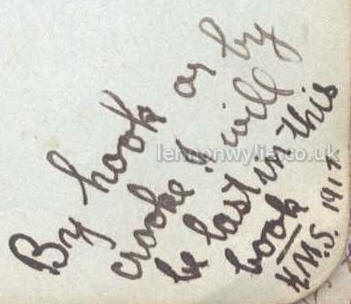 By hook or by
crooke I will
be last in this
book
H.M.S. 1917
lennonwylie.co.uk